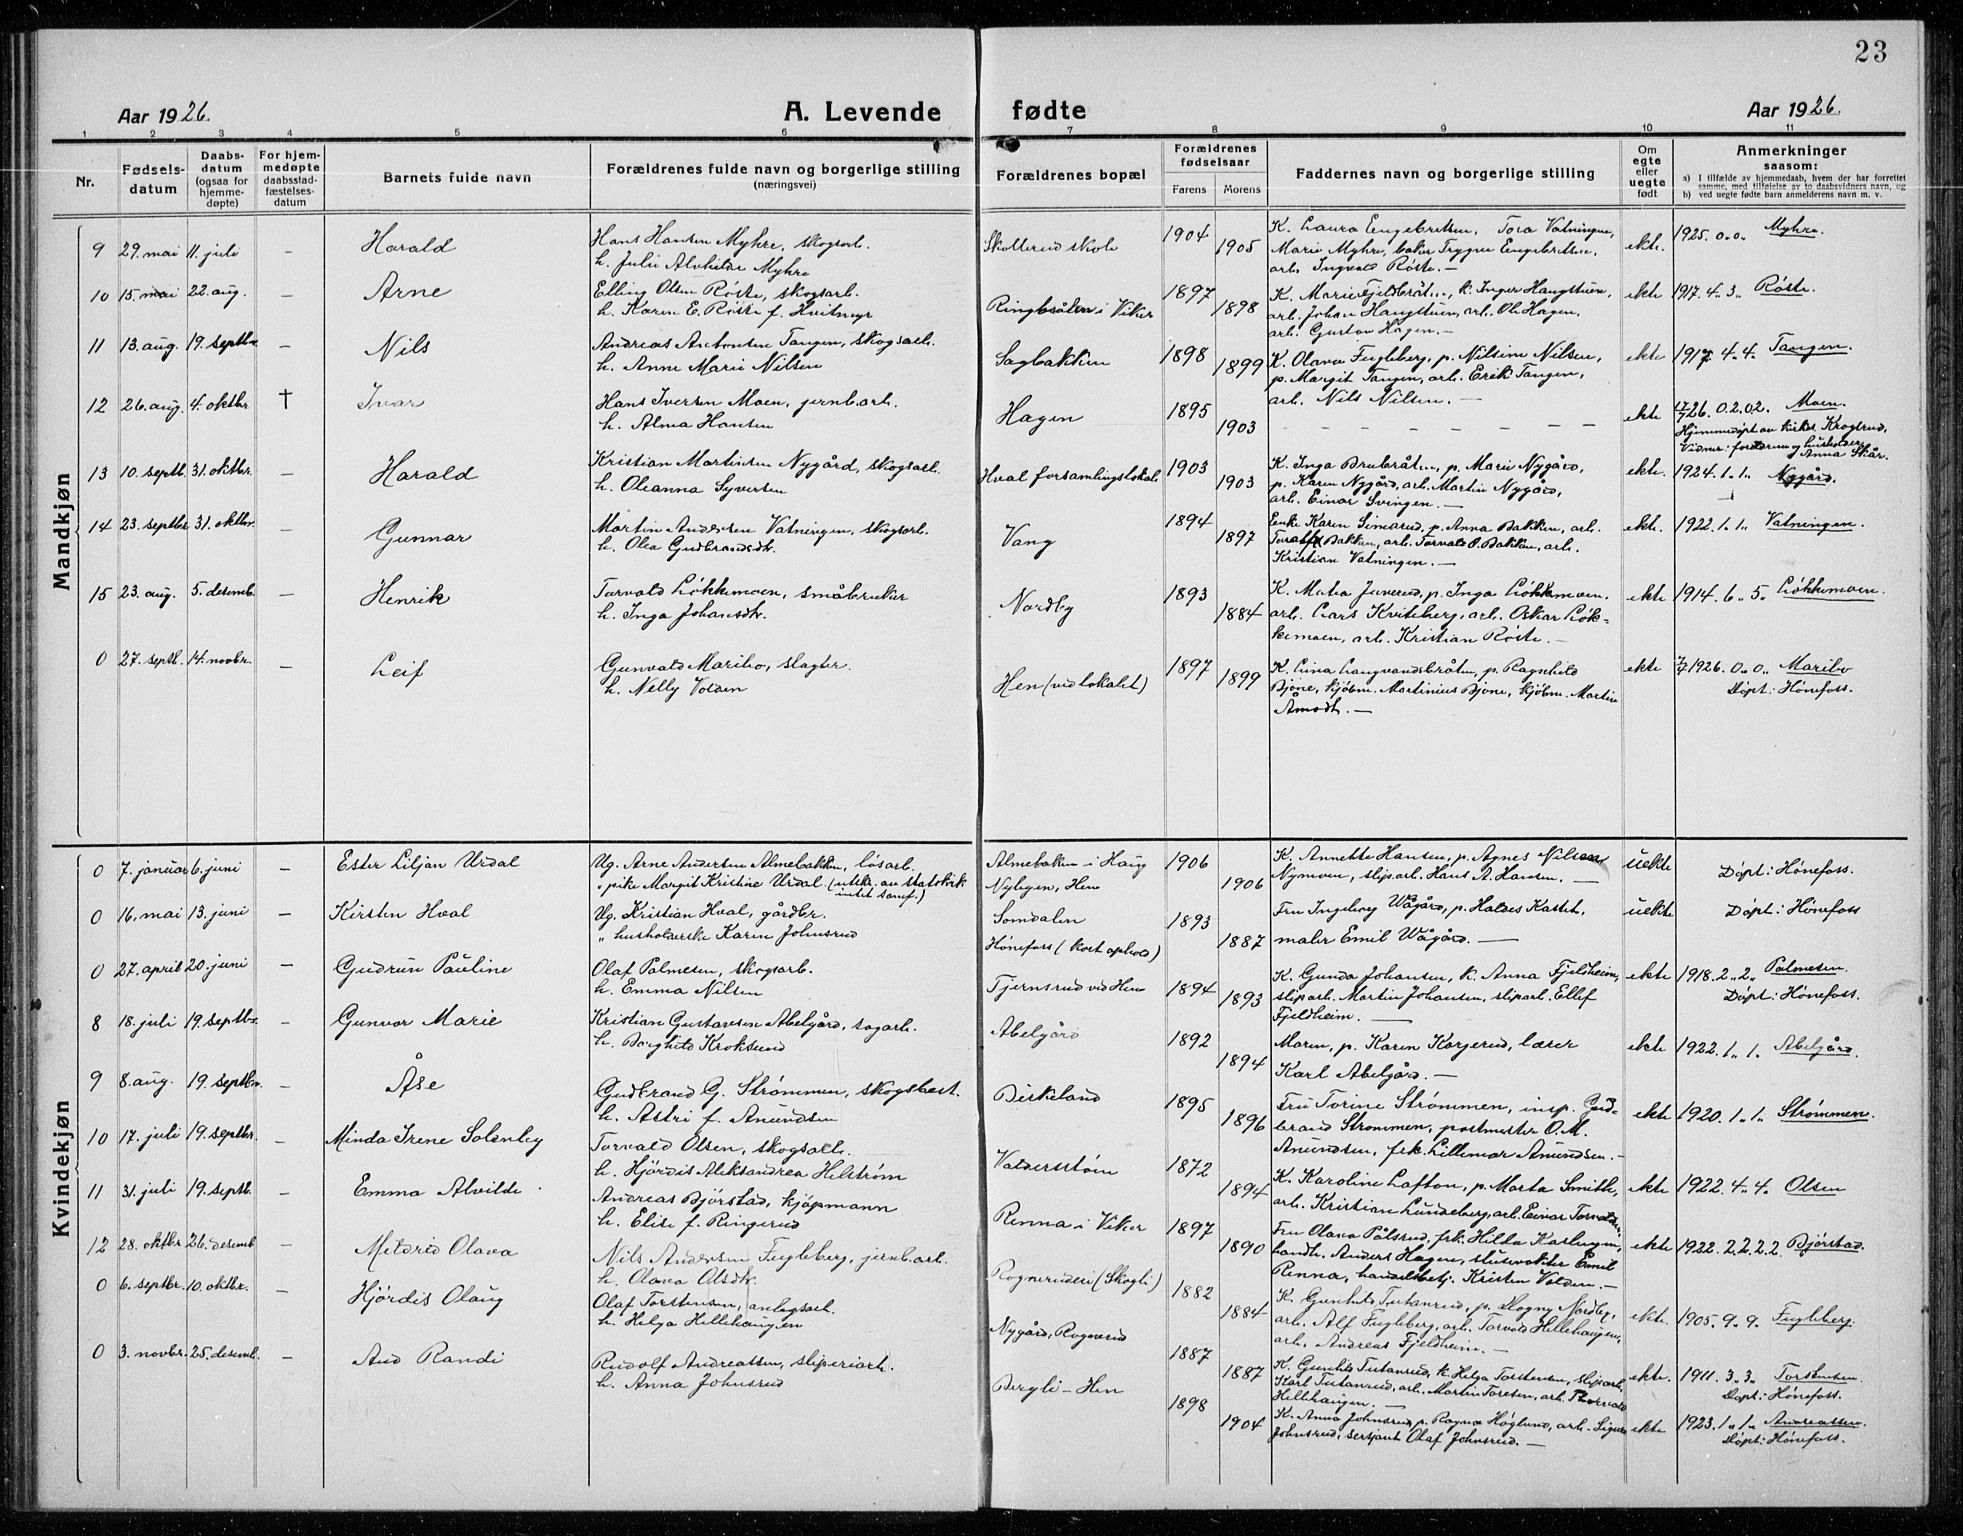 23
Aar 1926.
A. Levende fødte
Aar 1926.
1 2 3 4 5 6 7 8 9 10 11
Nr.
Fødsels-
datum
Daabs-
datum
(ogsaa for
hjemme-
døpte)
For hjem-
medøpte
daabsstad-
fæstelses-
datum
Barnets fulde navn
Forældrenes fulde navn og borgerlige stilling
(næringsvei)
Forældrenes bopæl
Forældrenes
fødselsaar
Farens Morens
Faddernes navn og borgerlige stilling
Om
egte
eller
uegte
født
Anmerkninger
saasom:
a) I tilfælde av hjemmedaab, hvem der har forrettet
samme, med tilføielse av to daabsvidners navn, og
b) ved uegte fødte barn anmelderens navn m. v.
Mandkjøn
9 29. mai 11. juli – Harald
Hans Hansen Myhre, skogsarb.
h. Julie Alvhilde Myhre
Skollerud skole 1904 1905
K. Laura Engebretsen, Tora Vatningen,
Marie Myhre, baker Trygve Engebretsen,
arb. Ingvald Røste. –
ekte. 1925. 0. 0. Myhre.
10 15. mai 22. aug. – Arne
Elling Olsen Røste, skogsarb.
h. Karen E. Røste f. Hvitmyr
Ringbsålen i Viker 1897 1898
K. Marie Fjeldbråten, k. Inger Haugstuen,
arb. Johan Haugstuen, arb. Ole Hagen,
arb. Gustav Hagen. –
ekte 1917. 4. 3. Røste.
11 13. aug. 19. septbr. – Nils
Andreas Antonsen Tangen, skogsarb.
h. Anne Marie Nilsen
Sagbakken 1898 1899
K. Olava Fugleberg, p. Nilsine Nilsen,
p. Margit Tangen, arb. Erik Tangen,
arb. Nils Nilsen. –
ekte 1917. 4. 4. Tangen.
12 26. aug. 4. oktbr. † Ivar
Hans Iversen Moen, jernb.arb.
h. Alma Hansen
Hagen 1895 1903
– – – – – – – –
ekte 26. 0. 2. 0. 2. Moen.
Hjemmedøpt av kirkes. Krogsrud,
Vidner: foreldrene og husholder
Anna Skår.
13 10. septb. 31. oktbr. – Harald
Kristian Martinsen Nygård, skogsarb.
h. Oleanna Syversen
Hval forsamlingslokale 1903 1903
K. Inga Brubråten, p. Marie Nygård,
p. Karen Nygård, arb. Martin Nygård,
arb. Einar Svingen. –
ekte. 1924. 1. 1. Nygård.
14 23. septbr. 31. oktbr. – Gunnar
Martin Andersen Vatningen, skogsarb.
h. Olea Gudbrandsdtr.
Vang 1894 1897
Enke Karen Semerud, p. Anna Bakken, arb.
Bakken, arb. Torvald O. Bakken, arb.
Kristian Vatningen. –
ekte. 1922. 1. 1. Vatningen.
15 23. aug. 5. desemb. – Henrik
Torvald Løkkemoen, småbruker
h. Inga Johansdtr.
Nordby 1893 1884
K. Mata Juverud, p. Inga Løkkemoen,
arb. Lars Kviteberg, arb. Oskar Løk-
kemoen, arb. Kristian Røste. –
ekte 1914. 6. 5. Løkkemoen.
0 27. septb. 14. novbr. – Leif
Gunvald Maribo, slagter.
h. Nelly Volden
Hen (ved lokalet) 1897 1899
K. Lina Langvandsbråten, p. Ragnhild
Bjone, kjøbm. Martinius Bjone, kjøbm. Martin
Åmodt. –
ekte 1926. 0. 0. Maribo
Døpt: Hønefoss.
Kvindekjøn
0 7. januar 6. juni – Ester Liljan Urdal
Ug. Arne Andersen Almebakken, løsarb.
„ pike Margit Kristine Urdal (utskr. av statskirk
intet samf.)
Almebakken i Haug
Nyhagen, Hen
1906 1906
K. Annette Hansen, p. Agnes Nilsen
Nymoen, sliparb. Hans A. Hansen. –
uekte Døpt: Hønefoss.
0 16. mai 13. juni – Kirsten Hval
Ug. Kristian Hval, gårdbr.
„ husholderske Karen Johnsrud
Somdalen
Hønefoss (kort ophold)
1893 1887
Fru Ingeborg Vågård, p. Haldis Kastet,
maler Emil Vågård. –
uekte Døpt: Hønefoss
0 27. april 20. juni – Gudrun Pauline
Olaf Palmesen, skogsarb.
h. Emma Nilsen
Tjernsrud ved Hen 1894 1893
K. Gunda Johansen, k. Anna Fjeldheim,
sliparb. Martin Johansen, sliparb. Ellef
Fjeldheim. –
ekte 1918. 2. 2. Palmesen.
Døpt: Hønefoss.
8 18. juli 19. septbr. – Gunvor Marie
Kristian Gustavsen Abelgård, sagarb.
h. Borghild Kroksund
Abelgård 1892 1894
Moren, p. Karen Korgerud, lærer
Karl Abelgård. –
ekte 1922. 1. 1. Abelgård.
9 8. aug. 19. septbr. – Åse
Gudbrand G. Strømmen, skogsbest.
h. Astri f. Anundsen
Birkeland 1895 1896
Fru Torine Strømmen, insp. Gud-
brand Strømmen, postmester O. M.
Anundsen, frk. Lillemor Anundsen. –
ekte 1920. 1. 1. Strømmen.
10 17. juli 19. septbr. – Minda Irene Solenby
Torvald Olsen, skogsarb.
h. Hjördis Aleksandrea Helstrøm
Valdersstøen 1872 1894
K. Karoline Lafton, p. Marta Smith,
arb. Kristian Lundeberg, arb. Einar Torvaldsen
ekte 1922. 4. 4. Olsen
11 31. juli 19. septb. – Emma Alvilde
Andreas Bjørstad, kjøpmann
h. Elise f. Ringerud
Renna i Viker 1897 1890
Fru Olava Pålsrud, frk. Hilla Kashugen,
handb. Anders Hagen, slusevokter Emil
Renna, handelsbetj. Kristen Volden. –
ekte 1922. 2. 2. 2. 2. Bjørstad.
12 28. oktbr. 26. desemb – Mildrid Olava
Nils Andersen Fugleberg, jernb.arb.
h. Olava Olsdtr.
Rognerudsei (Skogli) 1882 1884
K. Gunhild Tutanrud, p. Dagny Nordby,
arb. Alf Fugleberg, arb. Torvald Hellehaugen,
arb. Andreas Fjeldheim. –
ekte. 1905. 9. 9. Fugleberg.
0 6. septbr. 10. oktbr. – Hjördis Olaug
Olaf Torstensen, anlegsarb.
h. Helga Hellehaugen
Nygård, Rognerud 1887 1887
K. Gunhild Tutanrud, k. Helga Torstensen, sliparb.
Karl Tutanrud, arb. Martin Toresen, arb. Thorvald
Hellehaugen. –
ekte. 1911. 3. 3. Torstensen.
Døpt: Hønefoss.
0 3. novbr. 25. desemb. – Aud Randi
Rudolf Andreassen, sliperiarb.
h. Anna Johnsrud
Bergli – Hen 1898 1904
K. Anna Johnsrud, p. Ragna Høglund, arb. Sigurd
Johnsrud, sersjant Olaf Johnsrud. –
ekte 1923. 1. 1. Andreassen.
Døpt: Hønefoss.